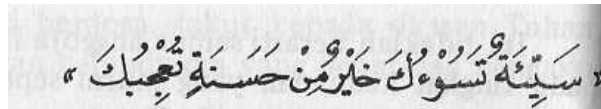 « سَيِّئَةٌ تَسُوْءُكَ خَيْرٌ مِنْ حَسَنَةٍ تُعْجِبُكَ »